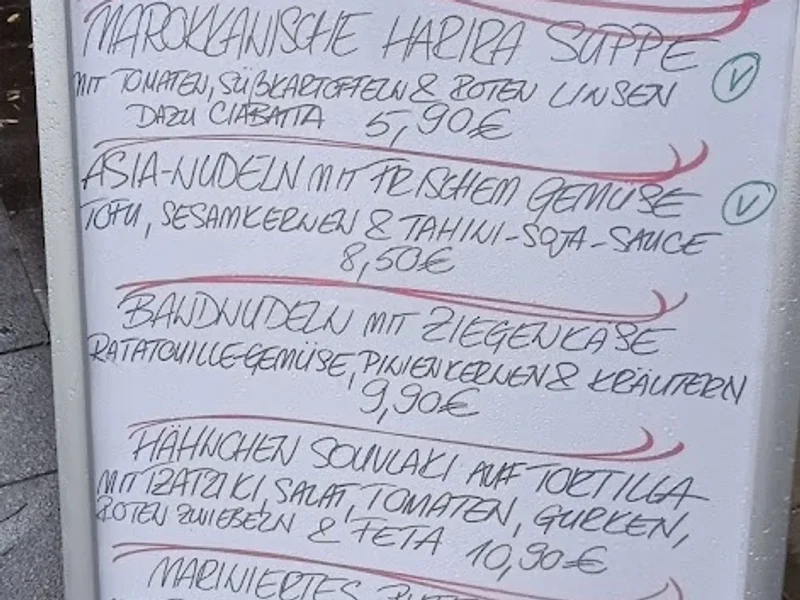 MAROKKANISCHE HARIRA SUPPE
MIT TOMATEN, SÜßKARTOFFELN & ROTEN LINSEN V
DAZU CIABATTA 5,90€
ASIA-NUDELN MIT FRISCHEM GEMÜSE V
TOFU, SESAMKERNEN & TAHINI-SOJA-SAUCE
8,50€
BANDNUDELN MIT ZIEGENKÄSE
RATATOUILLE-GEMÜSE, PINIENKERNEN & KRÄUTERN
9,90€
HÄHNCHEN SOUVLAKI AUF TORTILLA
MIT TZATZIKI, SALAT, TOMATEN, GURKEN,
ROTEN ZWIEBELN & FETA 10,90€
MARINIERTES